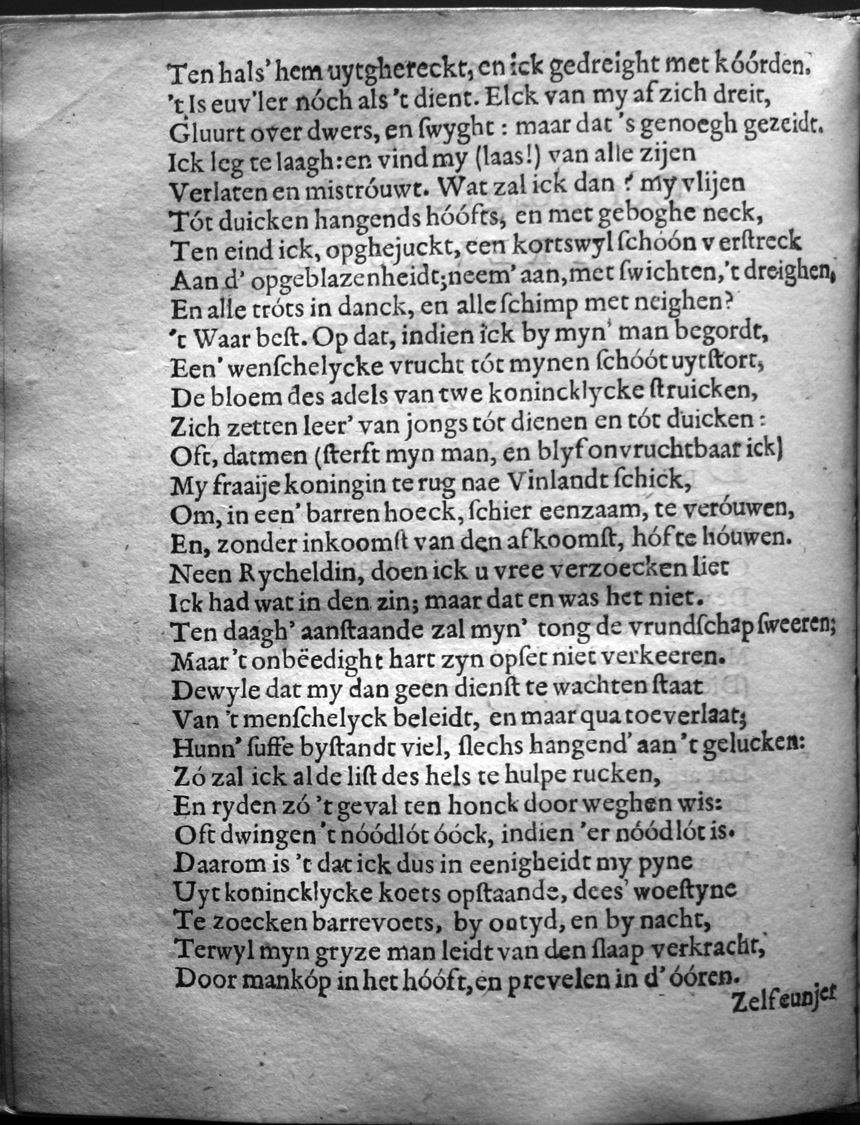 Ten hals' hem uytghereckt, en ick gedreight met kóórden.
't Is euv'ler nóch als 't dient. Elck van my af zich dreit,
Gluurt over dwers, en ſwyght : maar dat 's genoegh gezeidt.
Ick leg te laagh: en vind my (laas!) van alle zijen
Verlaten en mistróuwt. Wat zal ick dan ? my vlijen
Tót duicken hangends hóófts, en met geboghe neck,
Ten eind ick, opghejuckt, een kortswyl ſchóón verſtreck
Aan d' opgeblazenheidt; neem' aan, met ſwichten, 't dreighen,
En alle tróts in danck, en alle ſchimp met neighen?
't Waar beſt. Op dat, indien ick by myn' man begordt,
Een' wenſchelycke vrucht tót mynen ſchóót uytſtort,
De bloem des adels van twe konincklycke ſtruicken,
Zich zetten leer' van jongs tót dienen en tót duicken :
Oft, datmen (ſterft myn man, en blyf onvruchtbaar ick)
My fraaije koningin te rug nae Vinlandt ſchick,
Om, in een' barren hoeck, ſchier eenzaam, te veróuwen,
En, zonder inkoomſt van den afkoomſt, hóf te hóuwen.
Neen Rycheldin, doen ick u vree verzoecken liet
Ick had wat in den zin; maar dat en was het niet.
Ten daagh' aanſtaande zal myn' tong de vrundſchap ſweeren;
Maar 't onbëedight hart zyn opſet niet verkeeren.
Dewyle dat my dan geen dienſt te wachten ſtaat
Van 't menſchelyck beleidt, en maar qua toeverlaat;
Hunn' ſuffe byſtandt viel, ſlechs hangend' aan 't gelucken:
Zó zal ick al de liſt des hels te hulpe rucken,
En ryden zó 't geval ten honck door weghen wis:
Oft dwingen 't nóódlót óóck, indien 'er nóódlót is.
Daarom is 't dat ick dus in eenigheidt my pyne
Uyt konincklycke koets opſtaande, dees' woeſtyne
Te zoecken barrevoets, by ontyd, en by nacht,
Terwyl myn gryze man leidt van den ſlaap verkracht,
Door mankóp in het hóóft, en prevelen in d' óóren.
Zelf eunjer